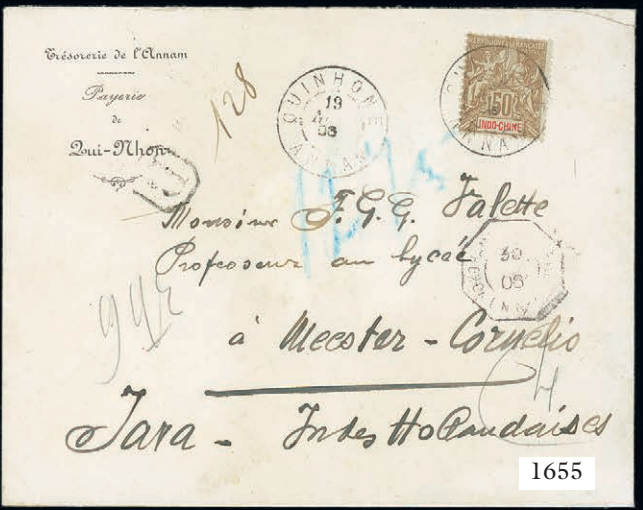 Trésorerie de l'Annam
Payerie
de
Qui-Nhon
128
QUINHON
19
03
ANNAM
RÉPUBLIQUE FRANÇAISE
50
INDO-CHINE
R
Monsieur F. G. G. Falette
Professeur au lycée
30
03
à Meester - Cornelio
Java - Indes Hollandaises
1655